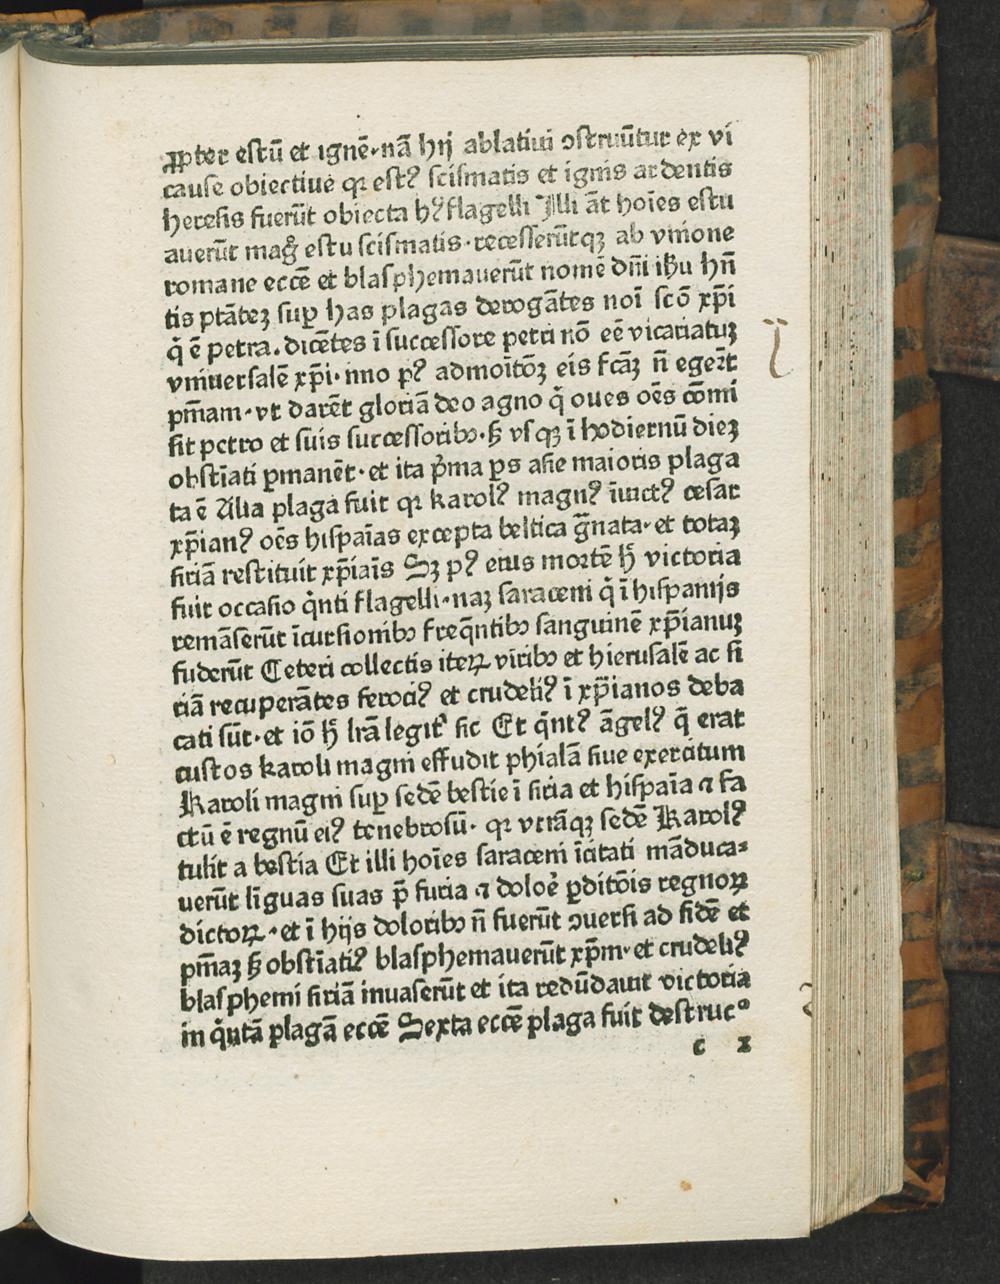 ꝓpter estū et ignē·nā hij ablatiui ↄstruūtur ex vi
cause obiectiue qꝛ estꝰ scismatis et ignis ardentis
heresis fuerūt obiecta hꝰ flagelli Illi āt hoīes estu
auerūt mago estu scismatis·recesserūtqꝫ ab vnione
romane eccē et blasphemauerūt nomē dn̄i ihū hn̄
tis ptātēꝫ suꝑ has plagas derogātes noī scō xp̄i
q̄ ē petra. dicētes ī successore petri nō eē vicariatuꝫ
vniuersalē xp̄i·nno pꝰ admoītōꝫ eis fcāꝫ n̄ egerūt
pnīam·vt darēt gloriā deo agno q̄ oues oēs cōmi
sit petro et suis successoribꝫ·ꝫ vsqꝫ ī hodiernū dieꝫ
obstīati ꝑmanēt·et ita p̄ma ꝑs asie maioris plaga
ta ē Alia plaga fuit qꝛ karolꝰ magnꝰ īuictꝰ cesar
xp̄ianꝰ oēs hispaīas excepta beltica ḡnata·et totaꝫ
siriā restituit xp̄iaīs Sꝫ pꝰ eius mortē h̄ victoria
fuit occasio q̄nti flagelli·naꝫ saraceni q̄ ī hispanijs
remāserūt īcursionibꝫ freq̄ntibꝫ sanguinē xp̄ianuꝫ
fuderūt Ceteri collectis iteꝝ viribꝫ et hierusalē ac si
riā recuperātes ferociꝰ et crudeliꝰ ī xp̄ianos deba
cati sūt·et iō h̄ lrā legit᷑ sic Et q̄ntꝰ āgelꝰ q̄ erat
custos karoli magni effudit phialā siue exercitum
Karoli magni suꝑ sedē bestie ī siria et hispaīa ⁊ fa
ctū ē regnū eiꝰ tenebrosū· qꝛ vtrāqꝫ sedē Karolꝰ
tulit a bestia Et illi hoīes saraceni īcitati māduca⸗
uerūt līguas suas p̄ furia ⁊ doloē ꝑditōis regnoꝝ
dictoꝝ·et ī hijs doloribꝫ n̄ fuerūt ↄuersi ad fidē et
pnīaꝫ ꝫ obstīatiꝰ blasphemauerūt xp̄m·et crudeliꝰ
blasphemi siriā inuaserūt et ita redūdauit victoria
in q̄ntā plagā eccē Sexta eccē plaga fuit destrucᵒ
c x